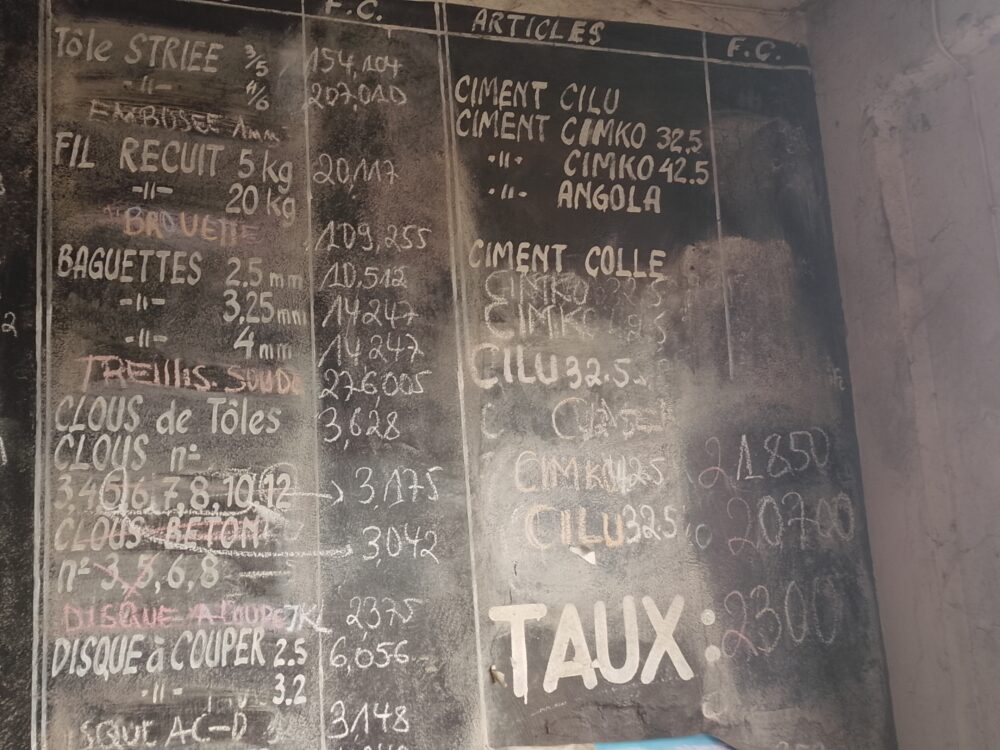 F.C.
Tôle STRIEE 3/5 154,104
-"- 4/6 207,010
EMBOSEE 1mm
FIL RECUIT 5 kg 20,117
-"- 20 kg
"BROUETTE 109,255
BAGUETTES 2.5 mm 10,512
-"- 3,25 mm 14247
-"- 4 mm 14247
TREILLIS. SOUDE 276,005
CLOUS de Tôles 3,628
CLOUS n°
3,4,5,6,7,8,10,12 → 3,175
CLOUS BETON 3,042
n° 3,5,6,8
DISQUE A COUPE 2375
DISQUE à COUPER 2.5 6,056
-"- 3.2
ISQUE AC-D 3,148
ARTICLES F.C.
CIMENT CILU
CIMENT CIMKO 32.5
-"- CIMKO 42.5
-"- ANGOLA
CIMENT COLLE
CIMKO 32.5
CIMKO
CILU 32.5
CIMKO 42.5 21850
CILU 32.5 20700
TAUX: 2300